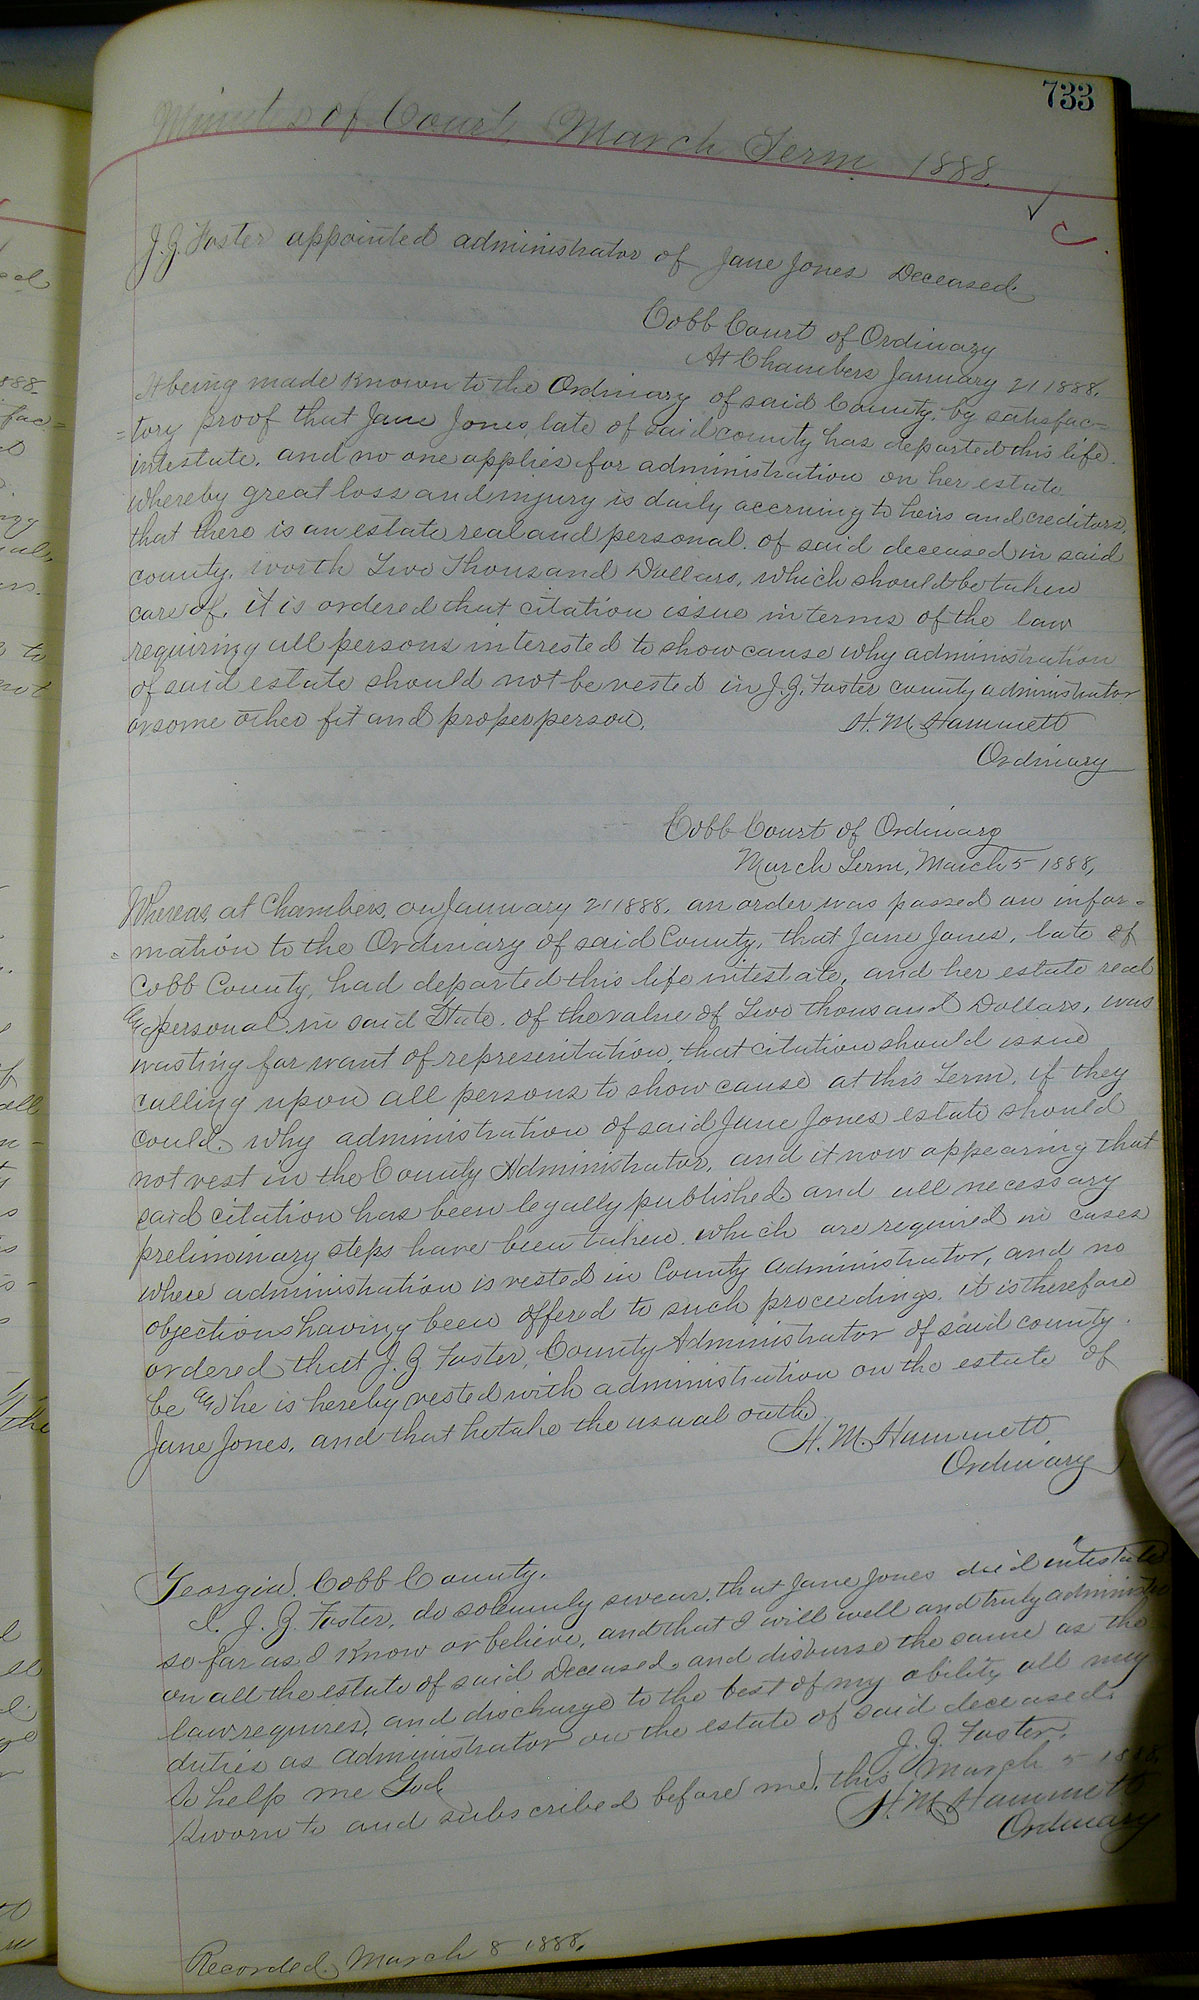 733
Minutes of Court, March Term 1888.
J. G. Foster appointed administrator of Jane Jones Deceased.
Cobb Court of Ordinary
At Chambers January 21 1888.
It being made known to the Ordinary of said County, by satisfac=
=tory proof that Jane Jones, late of said county has departed this life
intestate, and no one applies for administration on her estate
whereby great loss and injury is daily accruing to heirs and creditors,
that there is an estate real and personal, of said deceased in said
county, worth Two Thousand Dollars, which should be taken
care of, it is ordered that citation issue in terms of the law
requiring all persons interested to show cause why administration
of said estate should not be vested in J. G. Foster county administrator
or some other fit and proper person.
H. M. Hammett
Ordinary
Cobb Court of Ordinary
March Term, March 5 1888,
Whereas at Chambers, on January 21 1888, an order was passed on infor=
=mation to the Ordinary of said County, that Jane Jones, late of
Cobb County, had departed this life intestate, and her estate real
and personal in said State, of the value of Two thousand Dollars, was
wasting for want of representation, that citation should issue
calling upon all persons to show cause at this Term, if they
could, why administration of said Jane Jones estate should
not vest in the County Administrator, and it now appearing that
said citation has been legally published and all necessary
preliminary steps have been taken which are required in cases
where administration is vested in County administrator, and no
objections having been offered to such proceedings, it is therefore
ordered that J. G. Foster, County Administrator of said county.
be and he is hereby vested with administration on the estate of
Jane Jones, and that he take the usual oath.
H. M. Hammett
Ordinary
Georgia, Cobb County.
I, J. G. Foster, do solemnly swear, that Jane Jones died intestate
so far as I know or believe, and that I will well and truly administer
on all the estate of said Deceased, and disburse the same as the
law requires, and discharge to the best of my ability all my
duties as administrator on the estate of said deceased.
So help me God.
J. G. Foster.
Sworn to and subscribed before me, this March 5 1888.
H. M. Hammett
Ordinary
Recorded March 8 1888.